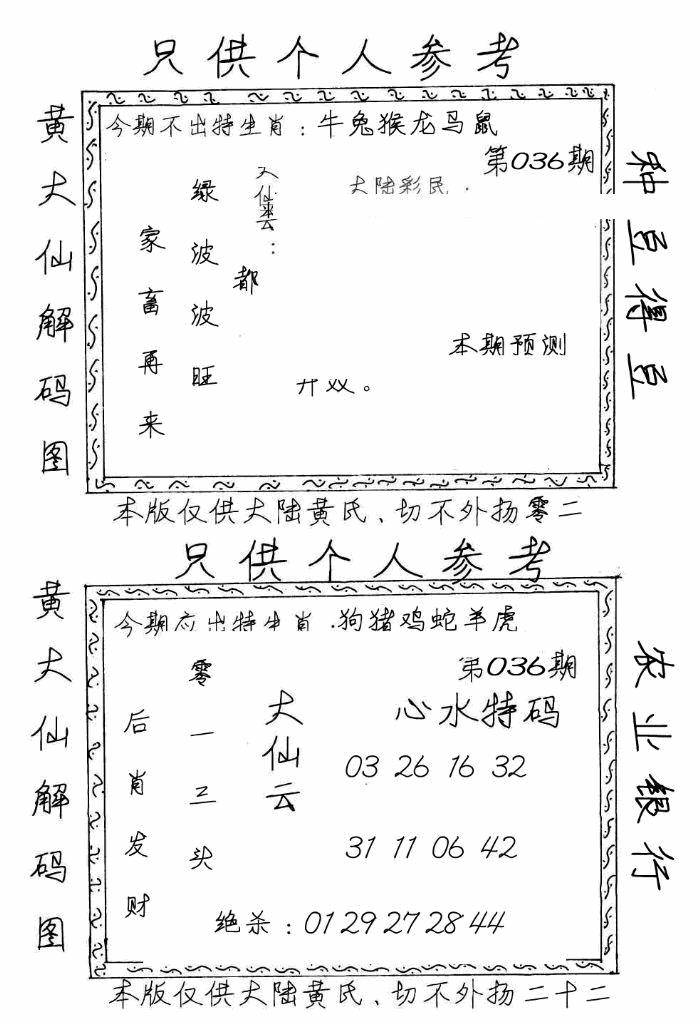 只供个人参考
黄大仙解码图
今期不出特生肖：牛兔猴龙马鼠
第036期
大陆彩民.
绿波波旺
家畜再来
都
本期预测
种豆得豆
本版仅供大陆黄氏、切不外扬零二
只供个人参考
黄大仙解码图
今期应出特生肖.狗猪鸡蛇羊虎
第036期
零一三头
后肖发财
大仙云
心水特码
03 26 16 32
31 11 06 42
绝杀：01 29 27 28 44
农业银行
本版仅供大陆黄氏、切不外扬二十二